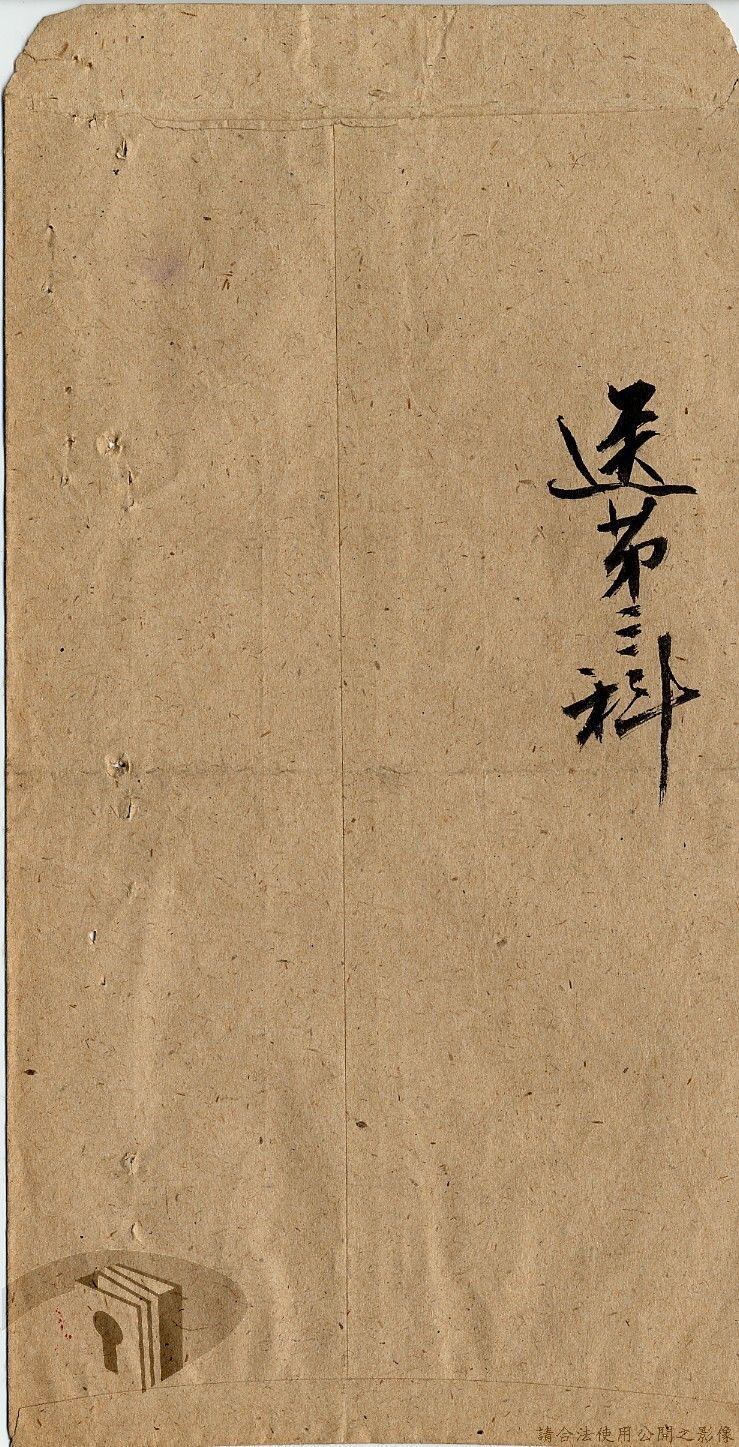 送第三科
請合法使用公開之影像